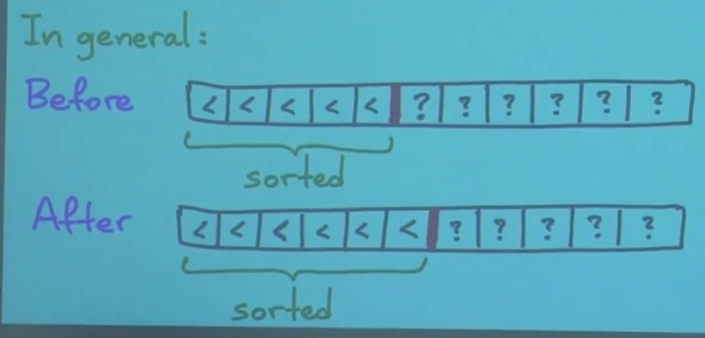 In general:
Before < < < < < ? ? ? ? ? ?
sorted
After < < < < < < ? ? ? ? ?
sorted